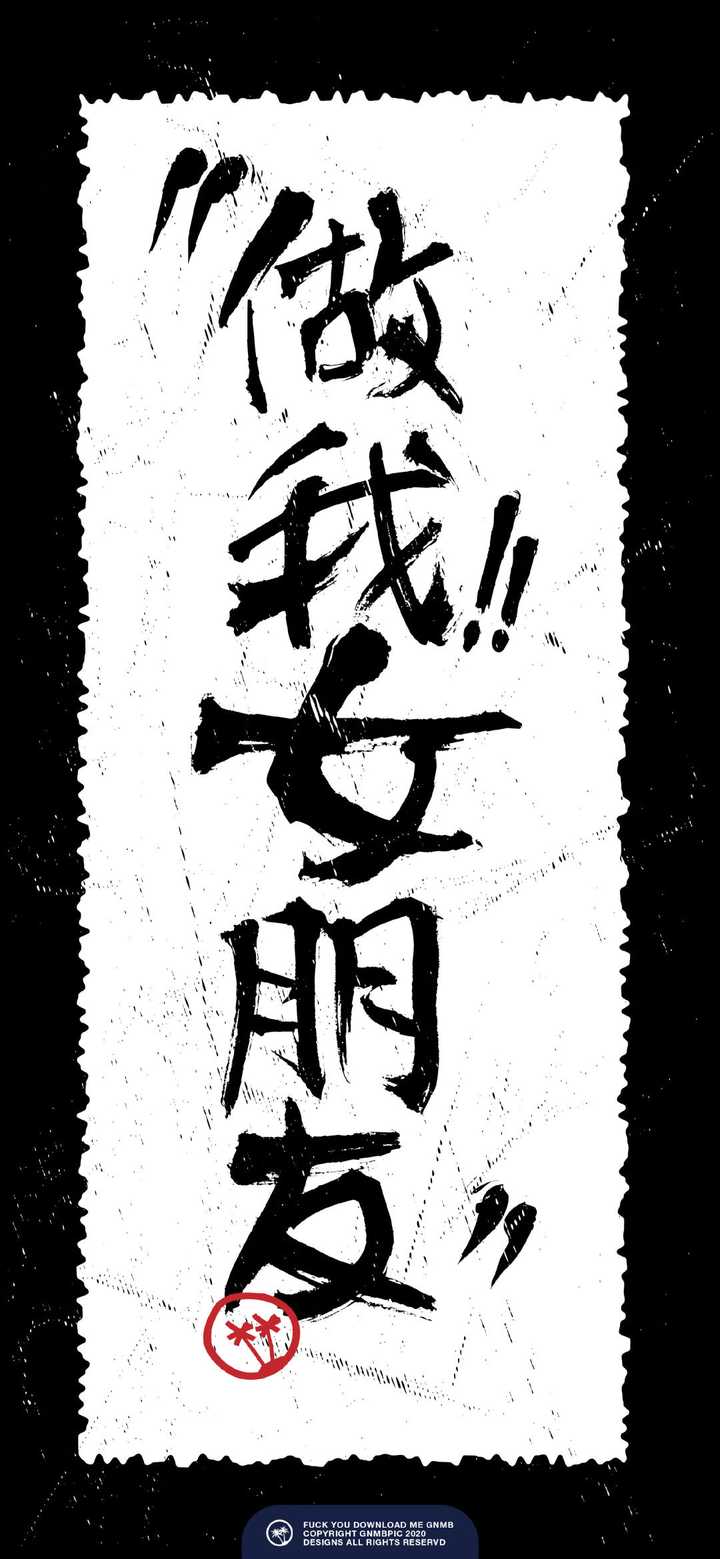 "做我女朋友"
!!
FUCK YOU DOWNLOAD ME GNMB
COPYRIGHT GNMBPIC 2020
DESIGNS ALL RIGHTS RESERVD